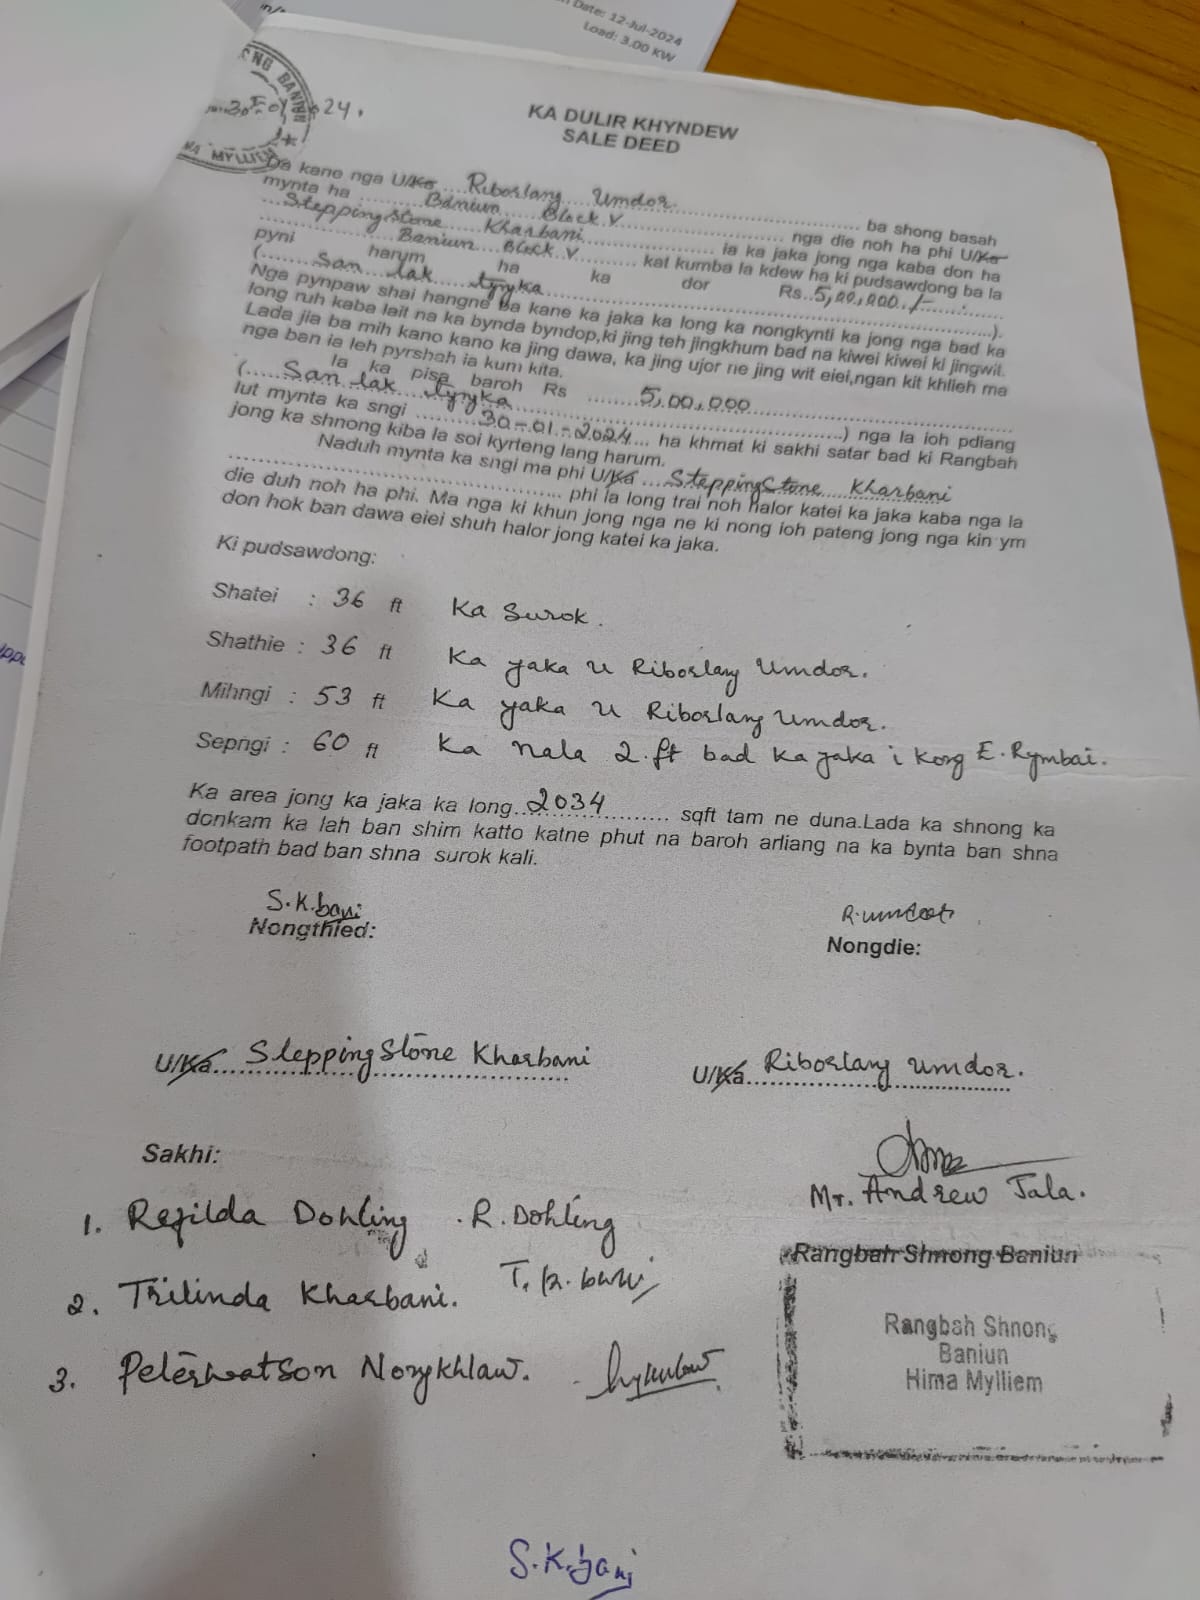 Date: 12-Jul-2024
Load: 3.00 KW
KA DULIR KHYNDEW
SALE DEED
Da kane nga U/Ka Riborlang Umdor ba shong basah
mynta ha Baniun Block V nga die noh ha phi U/Ka
SteppingStone Kharbani ia ka jaka jong nga kaba don ha
Baniun Block V kat kumba la kdew ha ki pudsawdong ba la
pyni harum ha ka dor Rs. 5,00,000/-
(San lak tyngka).
Nga pynpaw shai hangne ba kane ka jaka ka long ka nongkynti ka jong nga bad ka
long ruh kaba lait na ka bynda byndop,ki jing teh jingkhum bad na kiwei kiwei ki jingwit.
Lada jia ba mih kano kano ka jing dawa, ka jing ujor ne jing wit eiei,ngan kit khlieh ma
nga ban ia leh pyrshah ia kum kita.
Ia ka pisa baroh Rs 5,00,000
(San lak tyngka) nga la ioh pdiang
lut mynta ka sngi 30-01-2024 ha khmat ki sakhi satar bad ki Rangbah
jong ka shnong kiba la soi kyrteng lang harum.
Naduh mynta ka sngi ma phi U/Ka SteppingStone Kharbani
phi la long trai noh halor katei ka jaka kaba nga la
die duh noh ha phi. Ma nga ki khun jong nga ne ki nong ioh pateng jong nga kin ym
don hok ban dawa eiei shuh halor jong katei ka jaka.
Ki pudsawdong:
Shatei : 36 ft Ka Surok.
Shathie : 36 ft Ka jaka u Riborlang Umdor.
Mihngi : 53 ft Ka jaka u Riborlang Umdor.
Sepngi : 60 ft Ka nala 2.ft bad ka jaka i kong E. Rymbai.
Ka area jong ka jaka ka long 2034 sqft tam ne duna.Lada ka shnong ka
donkam ka lah ban shim katto katne phut na baroh arliang na ka bynta ban shna
footpath bad ban shna surok kali.
S.K.bani
Nongthied:
Nongdie:
U/Ka SteppingStone Kharbani
U/Ka Riborlang Umdor.
Sakhi:
Mr. Andrew Jala.
1. Rejilda Dohling .R. Dohling
Rangbah Shnong Baniun
2. Trilinda Kharbani.
Rangbah Shnong
Baniun
Hima Mylliem
3. Peterwatson Nongkhlaw.
S.K.bani